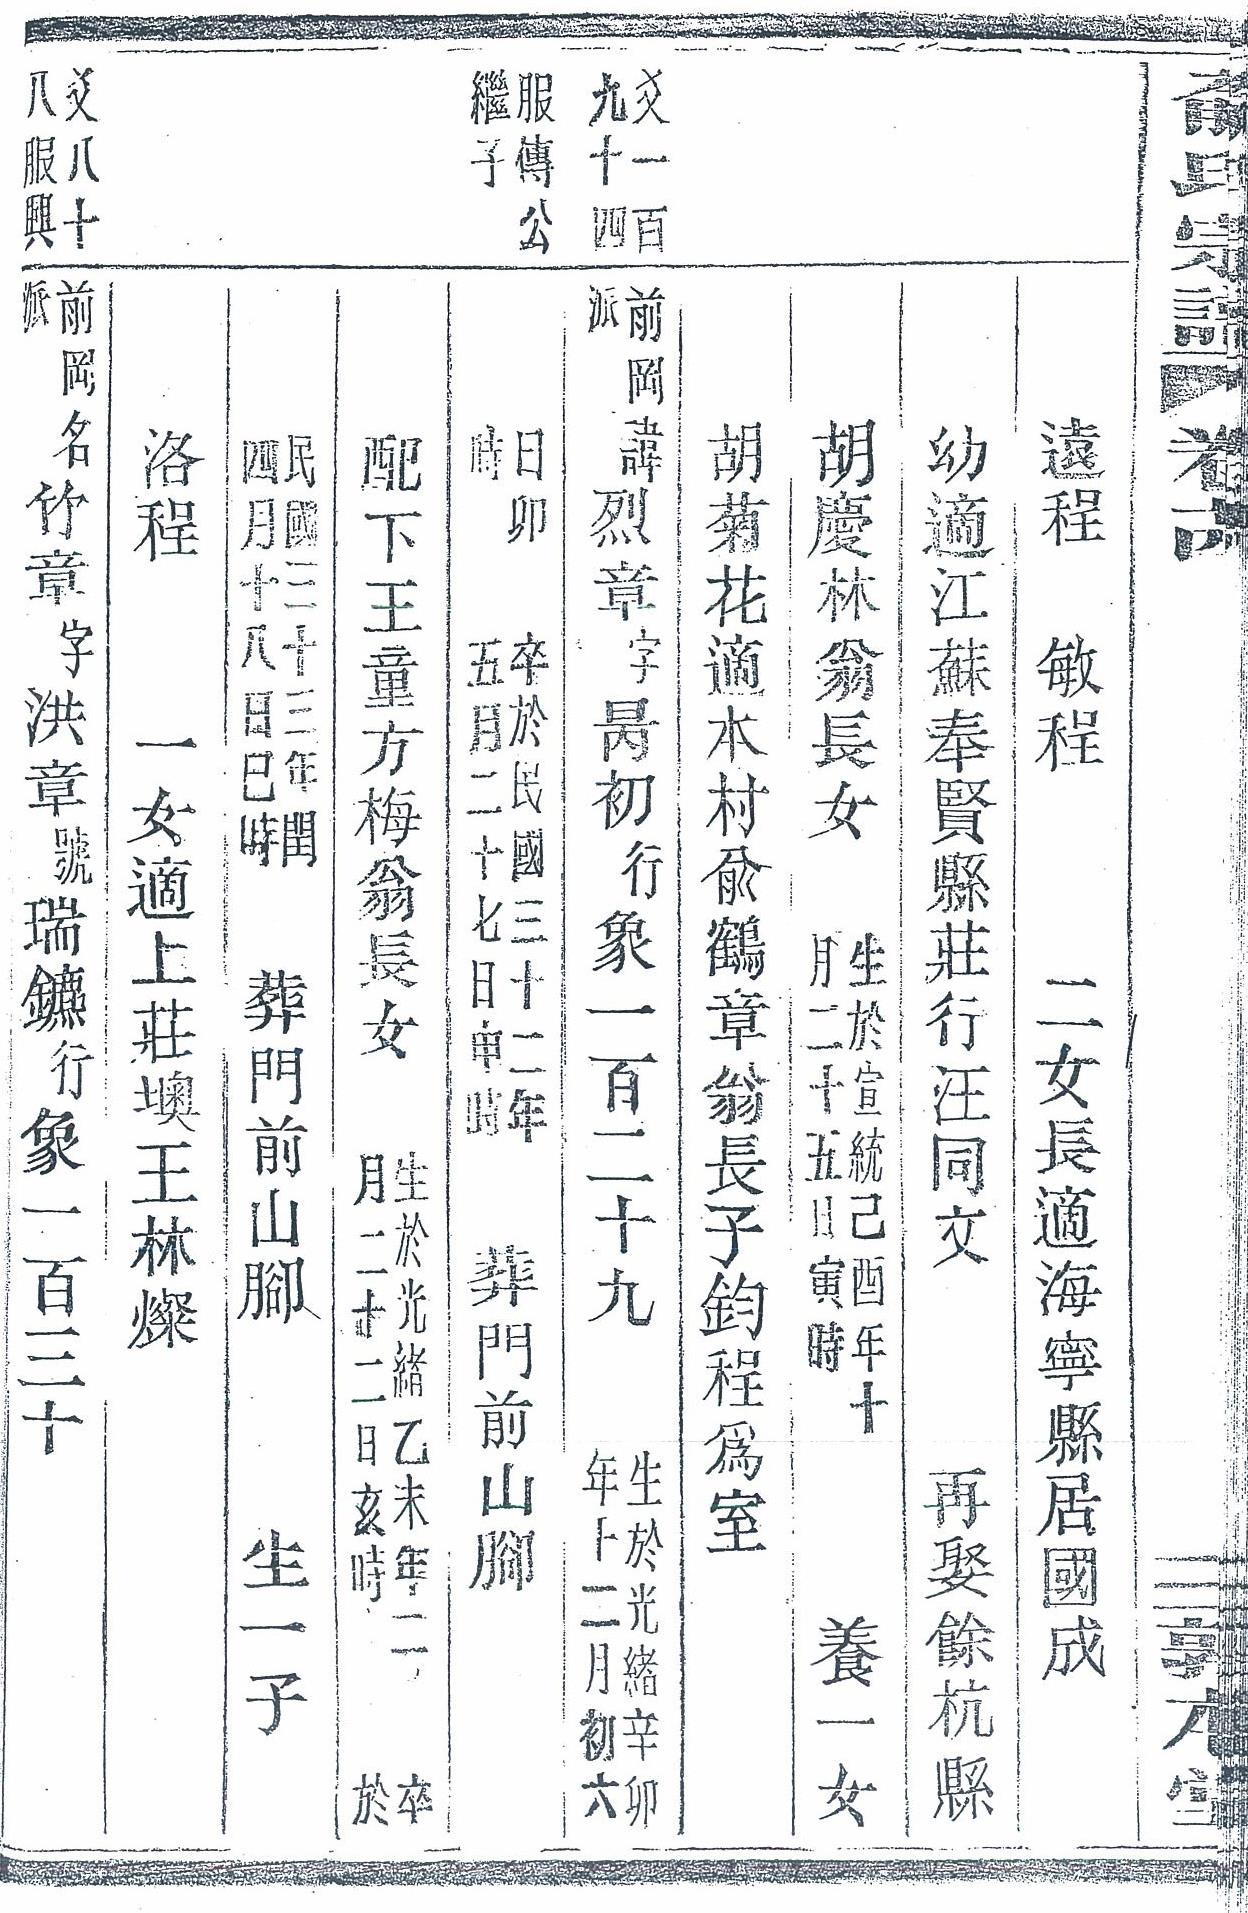 氏宗譜 卷六 敦本堂
遠程 敏程 二女長適海寧縣居國成
幼適江蘇奉賢縣莊行汪同文 再娶餘杭縣
胡慶林翁長女 生於宣統己酉年十月二十五日寅時 養一女
胡菊花適木村兪鶴章翁長子鈞程爲室
爻一百九十四
前岡派 諱烈章字昺初行象一百二十九 生於光緒辛卯年十二月初六
服傳公繼子
日卯時 卒於民國三十二年五月二十七日申時 葬門前山腳
配下王童方梅翁長女 生於光緒乙未年二月二十二日亥時 卒於
民國三十三年閏四月十八日巳時 葬門前山腳 生一子
洛程 一女適上莊墺王林燦
爻八十八服興
前岡派 名竹章字洪章號瑞鑣行象一百三十